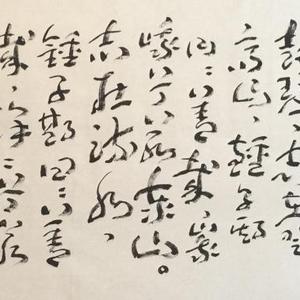 鼓琴，志在登
高山，鍾子期
曰：善哉，峩
峨兮若泰山。
志在流水，
鍾子期曰：善
哉，洋洋兮若